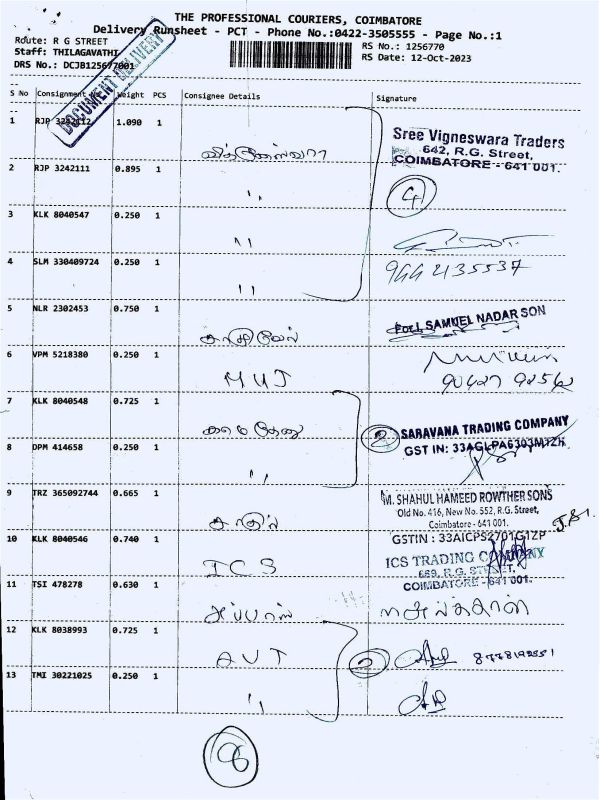 THE PROFESSIONAL COURIERS, COIMBATORE
Delivery Runsheet - PCT - Phone No.:0422-3505555 - Page No.:1
Route: R G STREET
Staff: THILAGAVATHI
DRS No.: DCJB125677001
RS No.: 1256770
RS Date: 12-Oct-2023
DOCUMENT DELIVERY
S No Consignment No Weight PCS Consignee Details Signature
1 RJP 3242112 1.090 1
Sree Vigneswara Traders
642, R.G. Street,
COIMBATORE - 641 001.
2 RJP 3242111 0.895 1
,,
4
3 KLK 8040547 0.250 1
,,
4 SLM 330409724 0.250 1
9442135537
,,
5 NLR 2302453 0.750 1
SAMUEL NADAR SON
6 VPM 5218380 0.250 1
MUJ
7 KLK 8040548 0.725 1
காமதேனு
2
SARAVANA TRADING COMPANY
GST IN: 33AGLPA6303M1ZK
8 DPM 414658 0.250 1
,,
9 TRZ 365092744 0.665 1
M. SHAHUL HAMEED ROWTHER SONS
Old No. 416, New No. 552, R.G. Street,
Coimbatore - 641 001.
GSTIN : 33AICPS2701G1ZP
காதர்
10 KLK 8040546 0.740 1
ICS
ICS TRADING COMPANY
689, R.G. STREET,
COIMBATORE - 641 001.
11 TSI 478278 0.630 1
அப்பாஸ்
12 KLK 8038993 0.725 1
AVT
2
13 TMI 30221025 0.250 1
,,